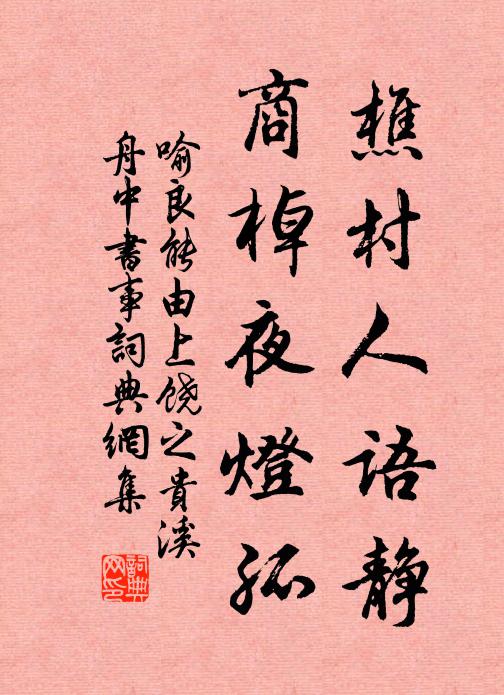 樵村人语静
商棹夜燈孤
喻良能由上饶之貴溪
舟中書事詞典網集
詞典网印